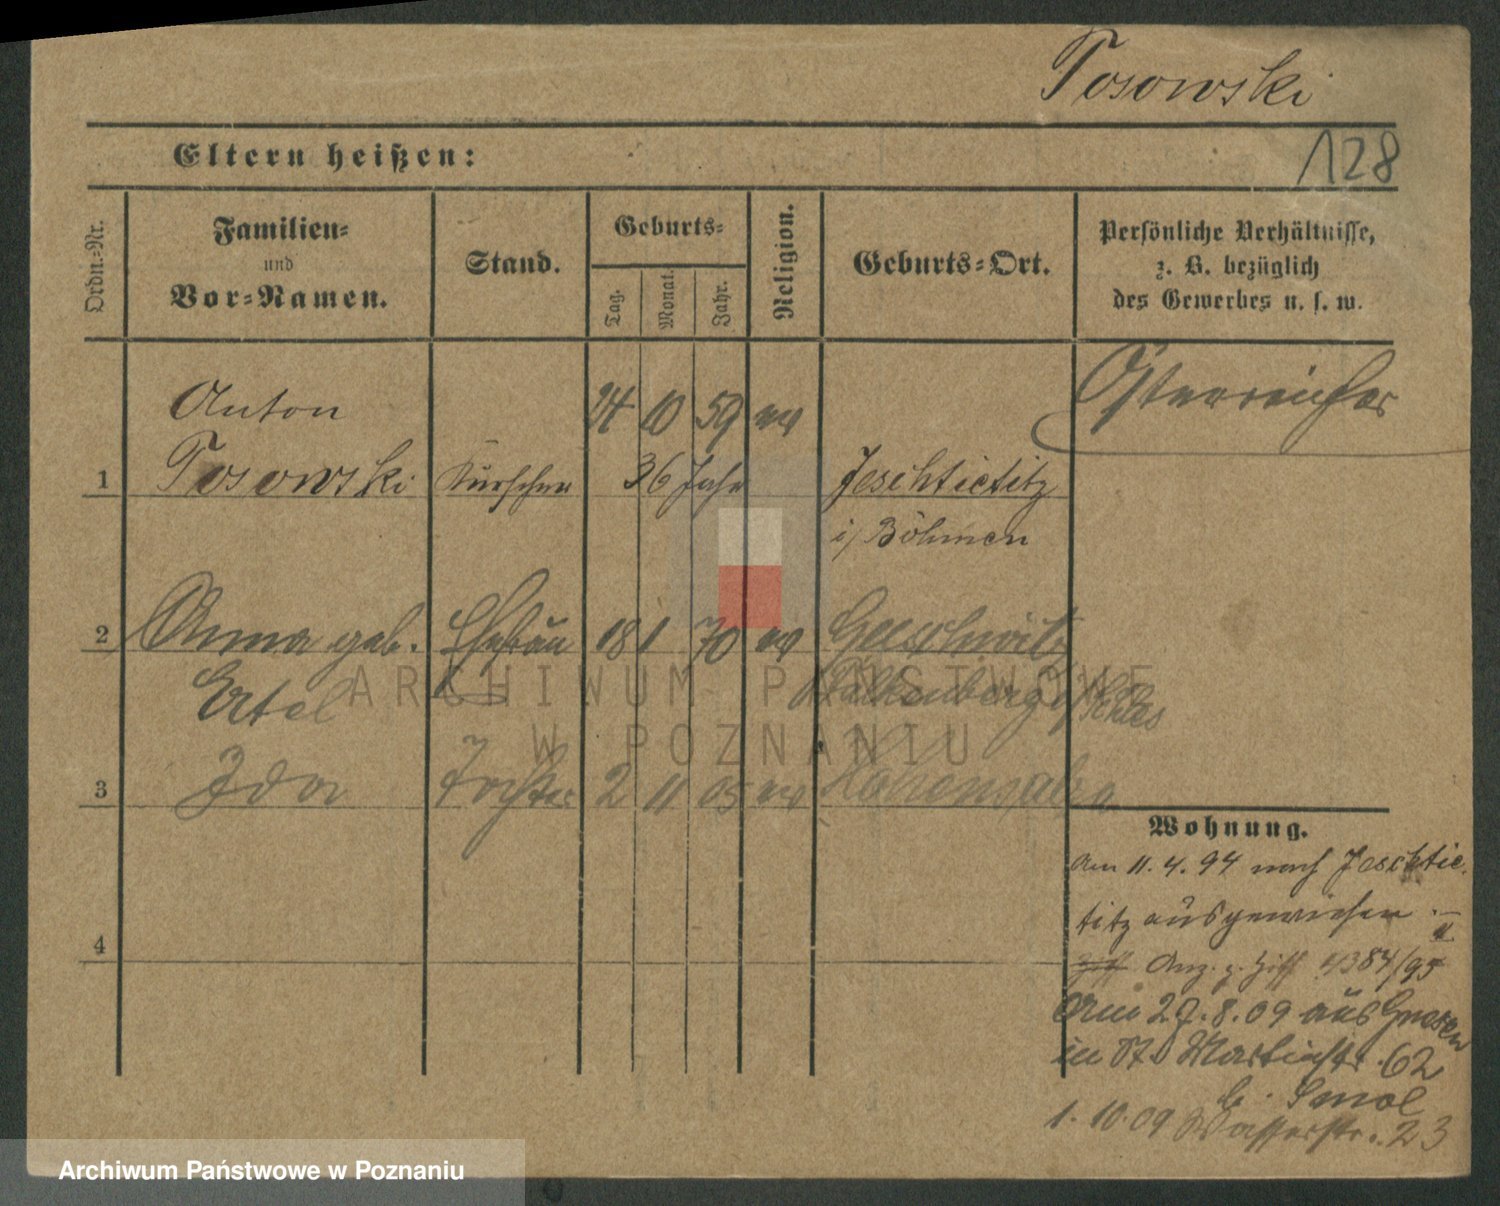 Tosowski
128
Eltern heißen:
Ordn.-Nr.
Familien-
und
Vor-Namen.
Stand.
Geburts-
Tag.
Monat.
Jahr.
Religion.
Geburts-Ort.
Persönliche Verhältnisse,
z. B. bezüglich
des Gewerbes u. s. w.
Österreicher
Anton
24 10 59
1 Tosowski Kürschner 36 Jahr Jeschtietitz
i/ Böhmen
2 Anna geb. Ehefrau 18 1 70
Ertel Falkenberg Schles
3 Ida Tochter 2 11 05 Hohensalza
Wohnung.
Am 11.4.94 nach Jeschtie-
titz ausgewiesen.
4384/95
4
Am 27.8.09 aus Gnesen
in St. Martinstr. 62
b. Smol
1.10.09 Wasserstr. 23
ARCHIWUM PAŃSTWOWE
W POZNANIU
Archiwum Państwowe w Poznaniu